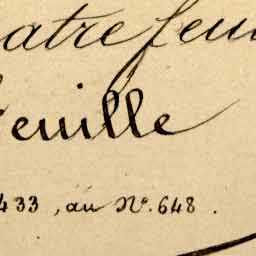 atre feu
feuille
433, au N°. 648.